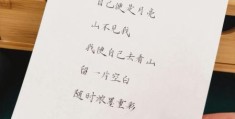 自己便是月亮
山不见我
我便自己去看山
留一片空白
随时浓墨重彩